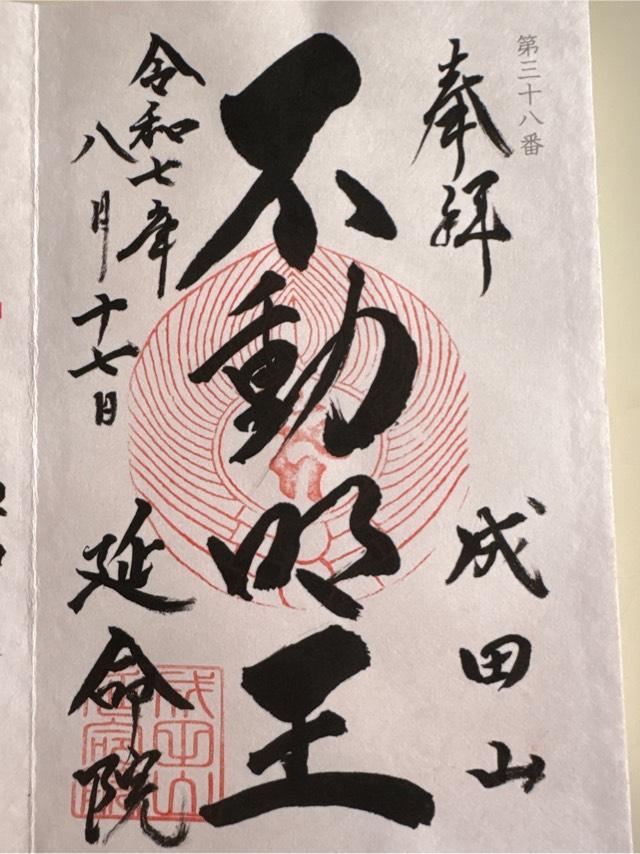 第三十八番
奉拝
成田山
不動明王
令和七年
八月十七日
延命院